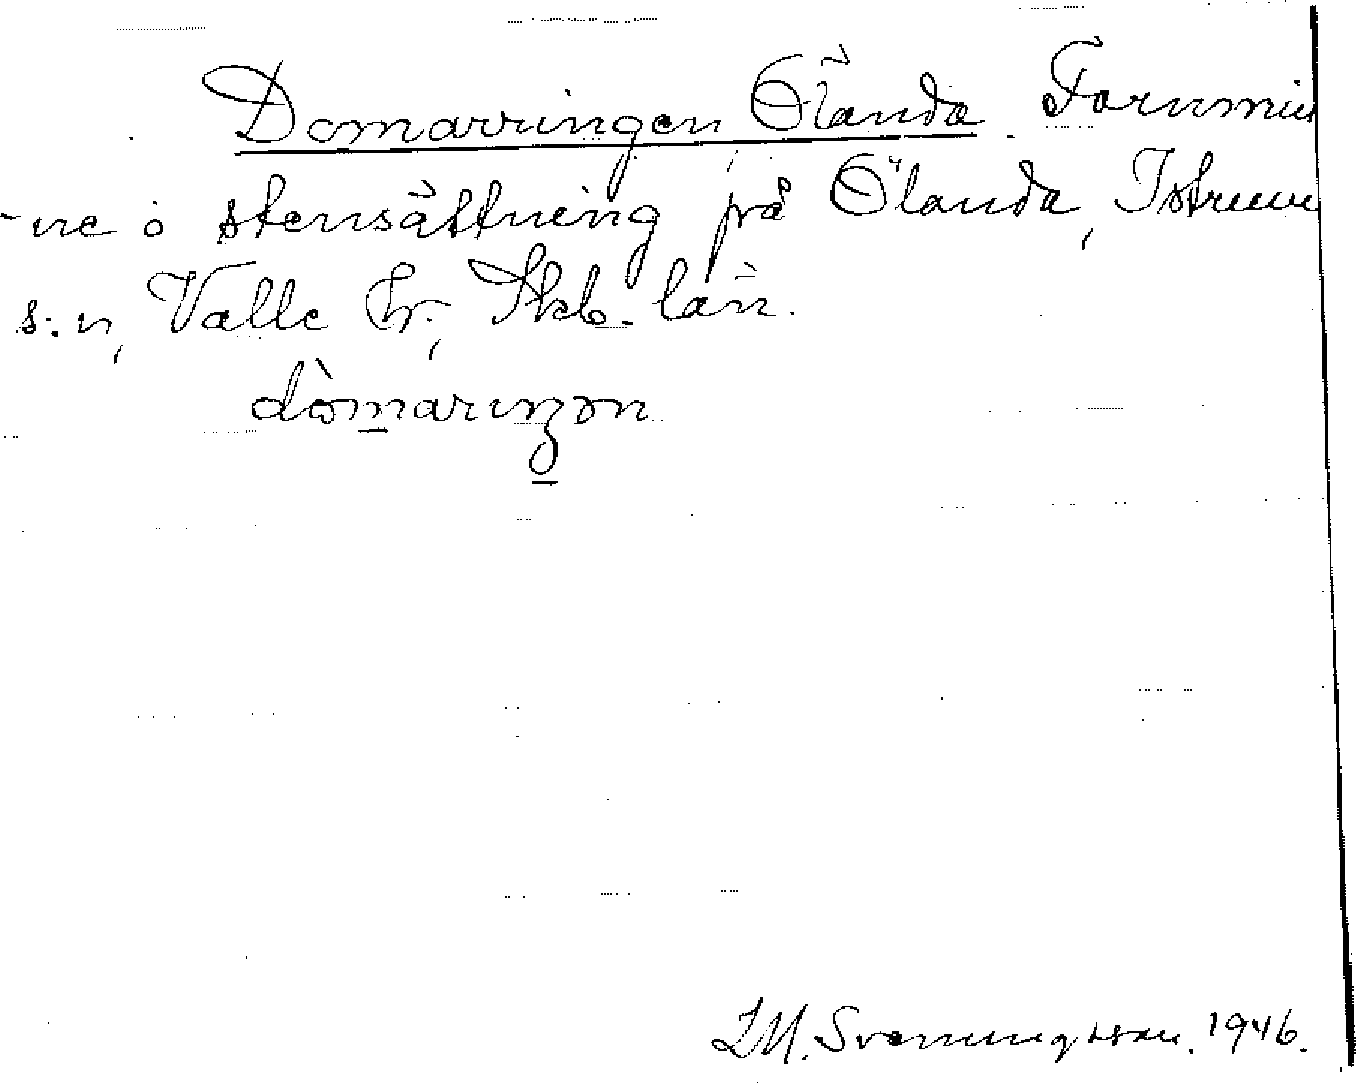 Domarringen Ölanda. Fornmin
-ne o stensättning på Ölanda, Istrum
s:n, Valle hr, Skb. län.
dòmariŋən
I.M. Svenningsson. 1946.